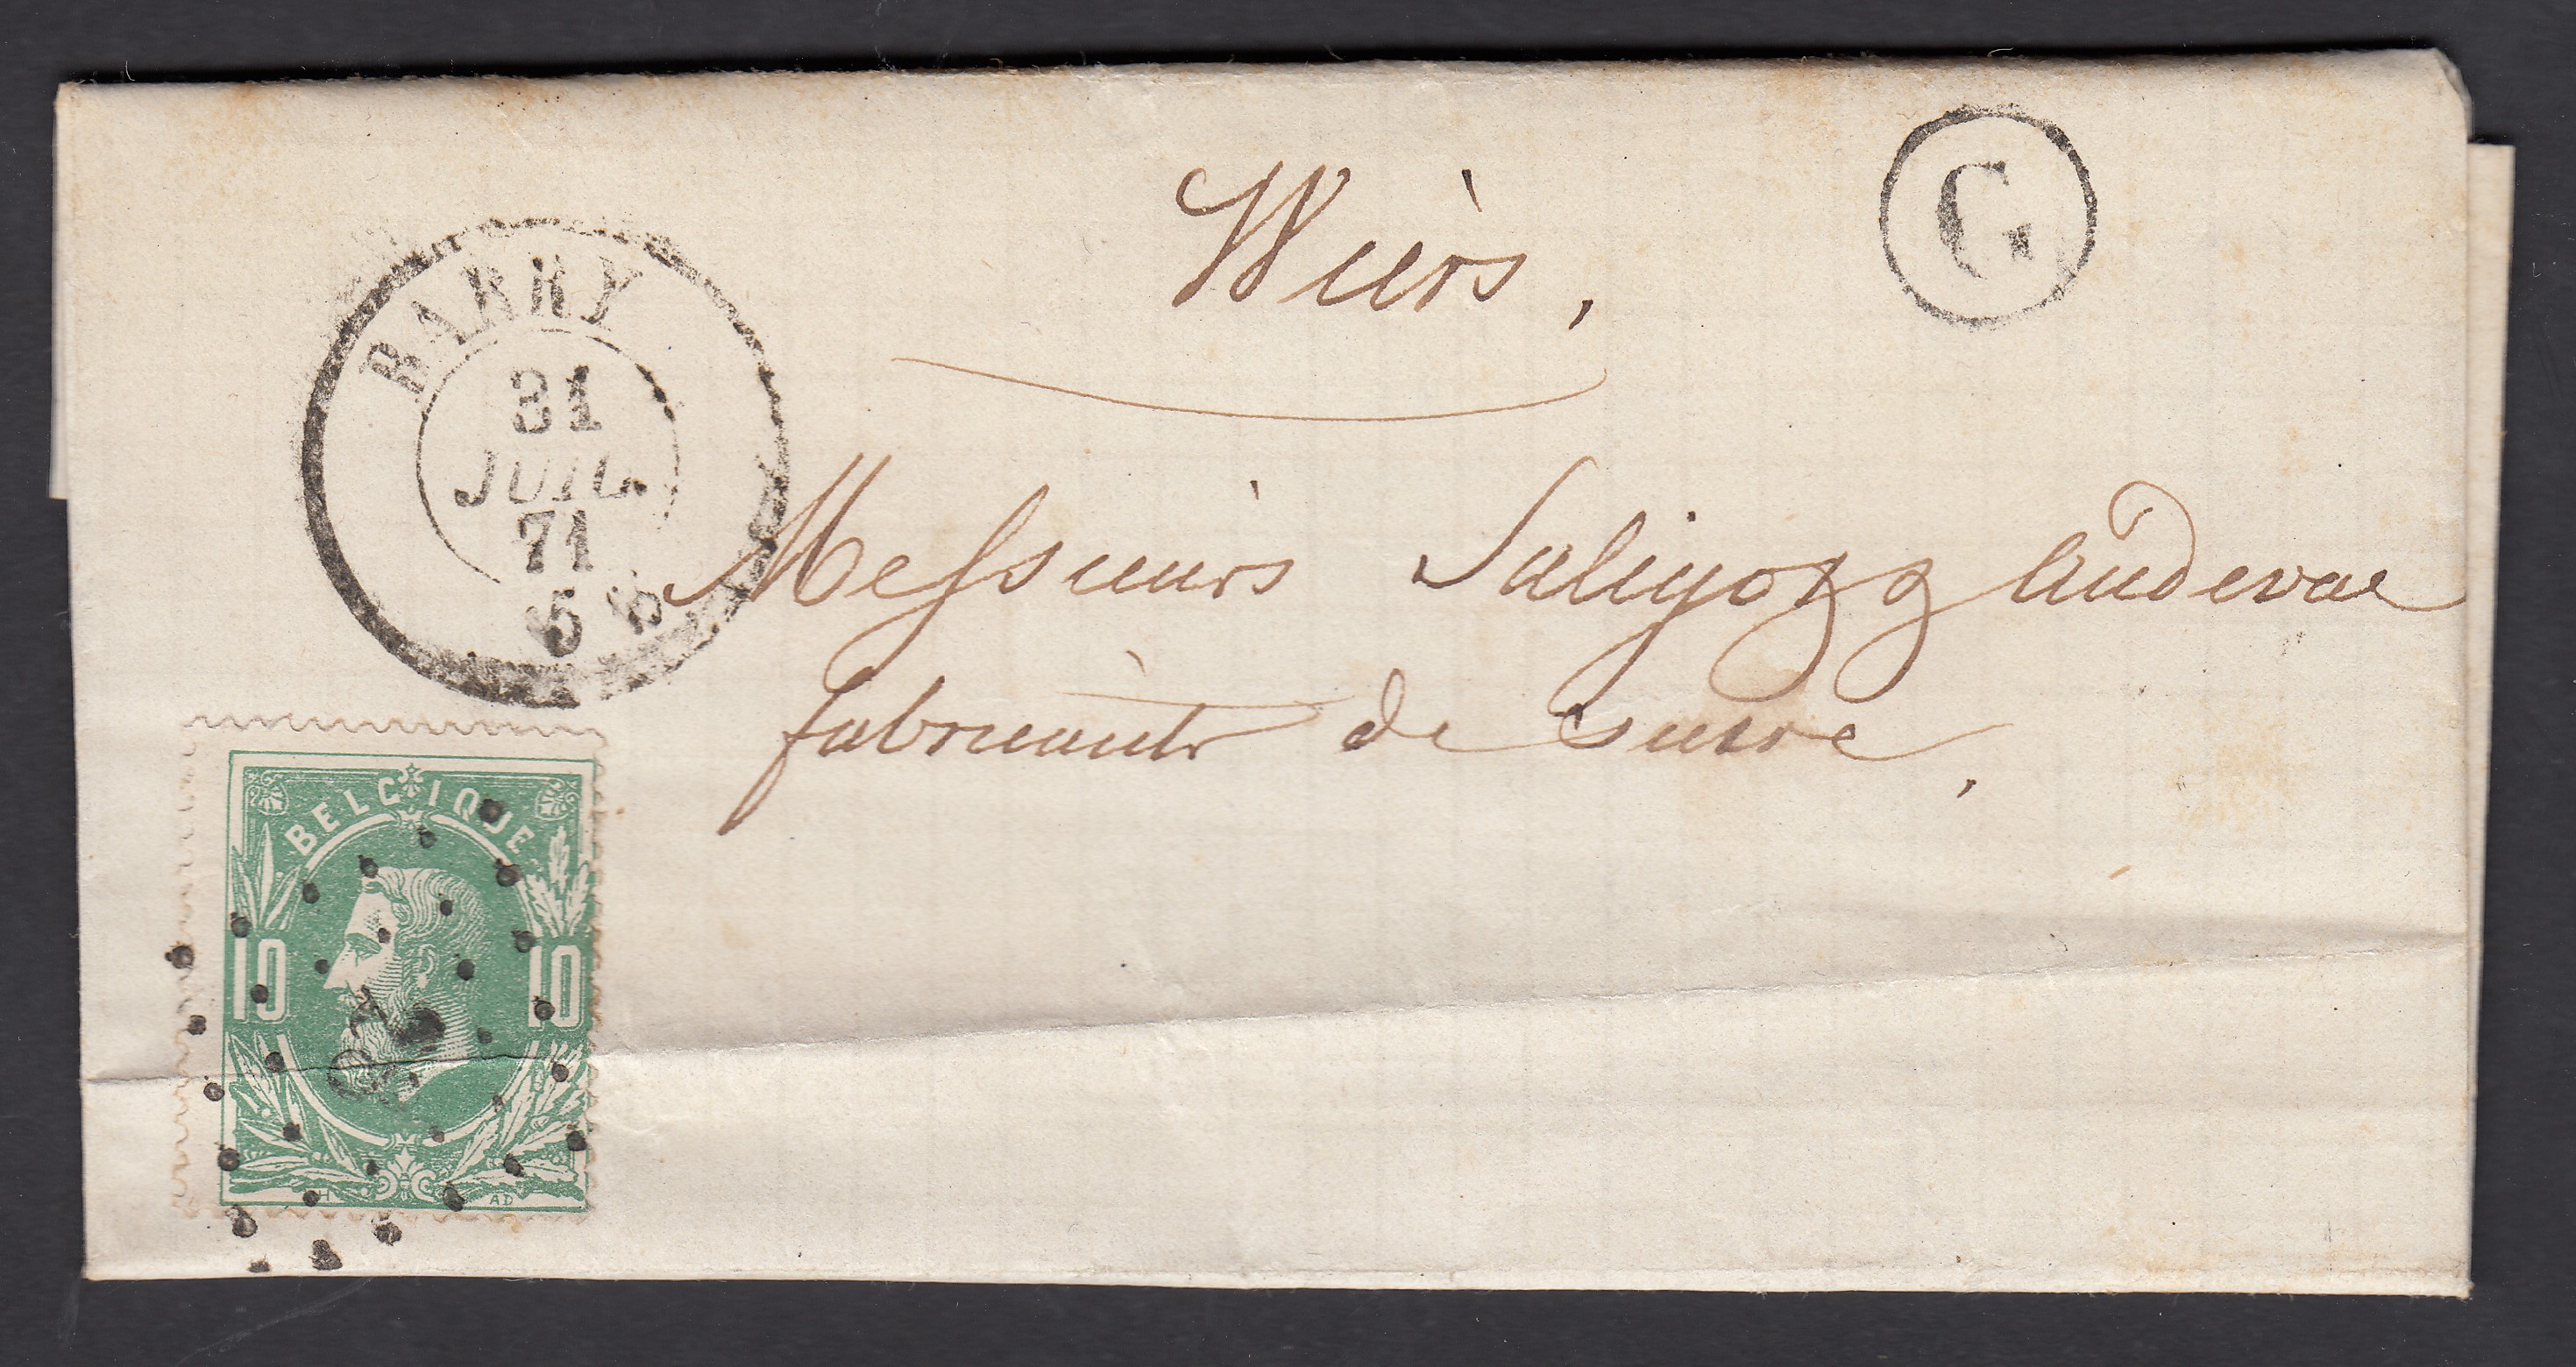 G
Wiers,
BARRY
31
JUIL.
71
5 S
Messieurs
fabricants de sucre,
BELGIQUE
10 10
H AD